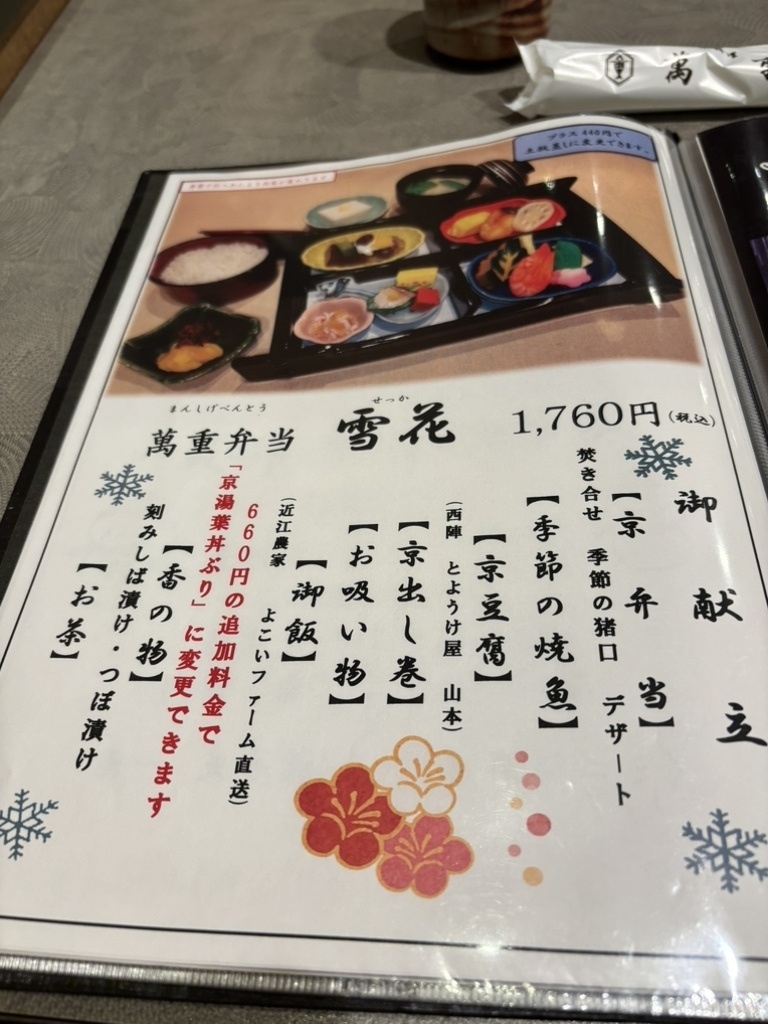 萬
プラス440円で
土瓶蒸しに変更できます。
まんしげべんとう
萬重弁当
せっか
雪花
1,760円(税込)
御献立
【京弁当】
焚き合せ 季節の猪口 デザート
【季節の焼魚】
【京豆腐】
(西陣 とようけ屋 山本)
【京出し巻】
【お吸い物】
【御飯】
(近江農家 よこいファーム直送)
660円の追加料金で
「京湯葉丼ぶり」に変更できます
【香の物】
刻みしば漬け・つぼ漬け
【お茶】